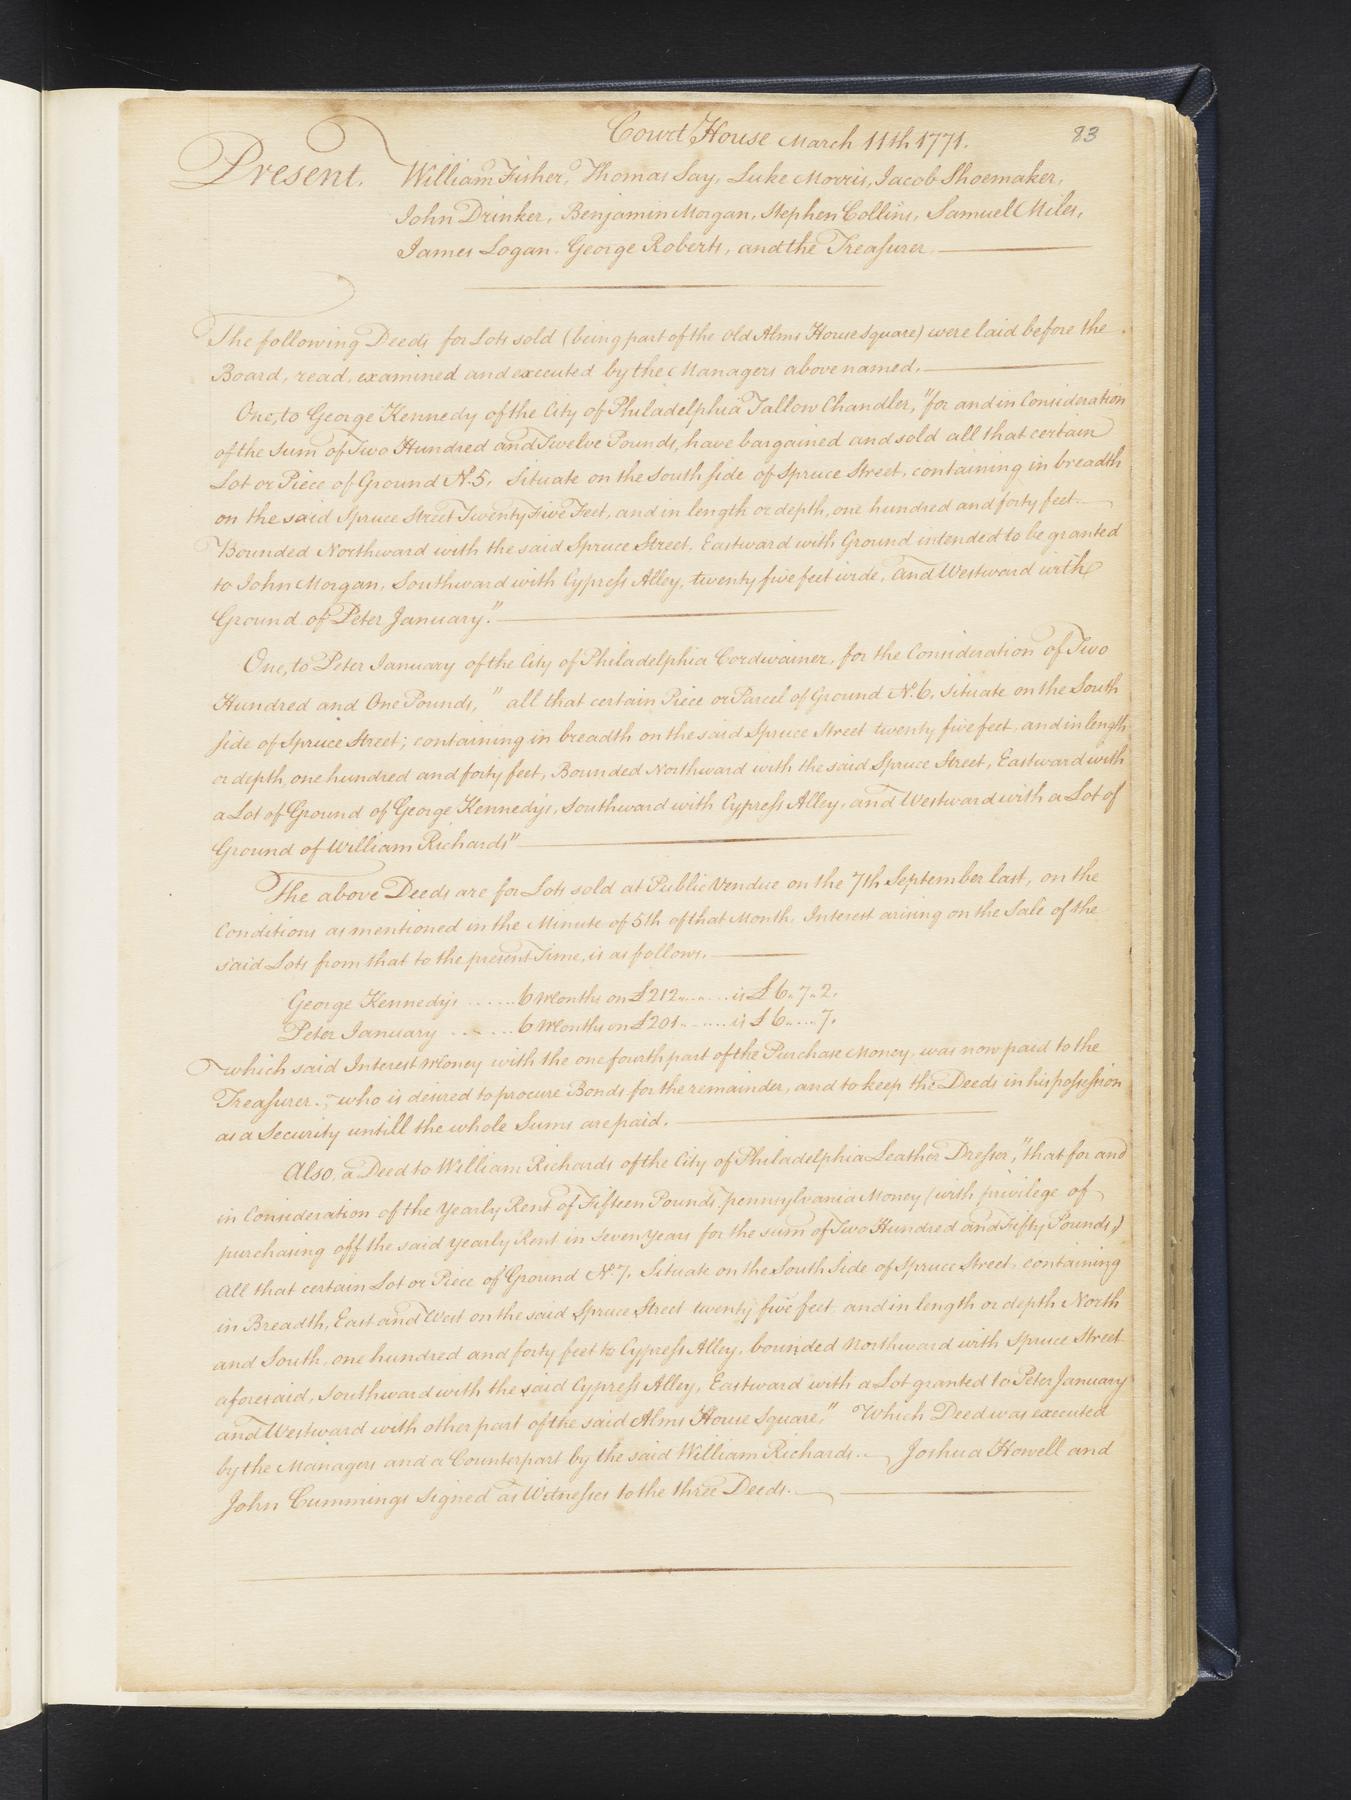 Court House March 11th 1771. 83
Present. William Fisher, Thomas Say, Luke Morris, Jacob Shoemaker,
John Drinker, Benjamin Morgan, Stephen Collins, Samuel Miles,
James Logan. George Roberts, and the Treasurer.
The following Deeds for Lots sold (being part of the Old Alms House Square) were laid before the
Board, read, examined and executed by the Managers above named.
One, to George Kennedy of the City of Philadelphia Tallow Chandler, "for and in Consideration
of the Sum of Two Hundred and Twelve Pounds, have bargained and sold all that certain
Lot or Piece of Ground No. 5, Situate on the South side of Spruce Street, containing in breadth
on the said Spruce Street Twenty Five Feet, and in length or depth, one hundred and forty feet
Bounded Northward with the said Spruce Street, Eastward with Ground intended to be granted
to John Morgan, Southward with Cypress Alley, twenty five feet wide, and Westward with
Ground of Peter January."
One, to Peter January of the City of Philadelphia Cordwainer, for the Consideration of Two
Hundred and One Pounds, " all that certain Piece or Parcel of Ground No. 6, Situate on the South
side of Spruce Street; containing in breadth on the said Spruce Street twenty five feet, and in length
or depth, one hundred and forty feet, Bounded Northward with the said Spruce Street, Eastward with
a Lot of Ground of George Kennedys, Southward with Cypress Alley, and Westward with a Lot of
Ground of William Richards"
The above Deeds are for Lots sold at Public Vendue on the 7th September last, on the
Conditions as mentioned in the Minute of 5th of that Month, Interest arising on the Sale of the
said Lots from that to the present Time, is as follows.
George Kennedys ...... 6 Months on £212 ...... is £6.7.2.
Peter January ...... 6 Months on £201 ...... is £6....7.
which said Interest Money with the one fourth part of the Purchase Money, was now paid to the
Treasurer.; who is desired to procure Bonds for the remainder, and to keep the Deeds in his possession
as a Security untill the whole Sums are paid.
Also, a Deed to William Richards of the City of Philadelphia Leather Dresser, "that for and
in Consideration of the Yearly Rent of Fifteen Pounds, pennsylvania Money (with privilege of
purchasing off the said yearly Rent in Seven Years for the sum of Two Hundred and Fifty Pounds,)
all that certain Lot or Piece of Ground No. 7, Situate on the South Side of Spruce Street, containing
in Breadth, East and West on the said Spruce Street twenty five feet, and in length or depth North
and South, one hundred and forty feet to Cypress Alley, bounded Northward with Spruce Street
aforesaid, Southward with the said Cypress Alley, Eastward with a Lot granted to Peter January
and Westward with other part of the said Alms House Square," Which Deed was executed
by the Managers and a Counterpart by the said William Richards. Joshua Howell and
John Cummings Signed as Witnesses to the three Deeds.